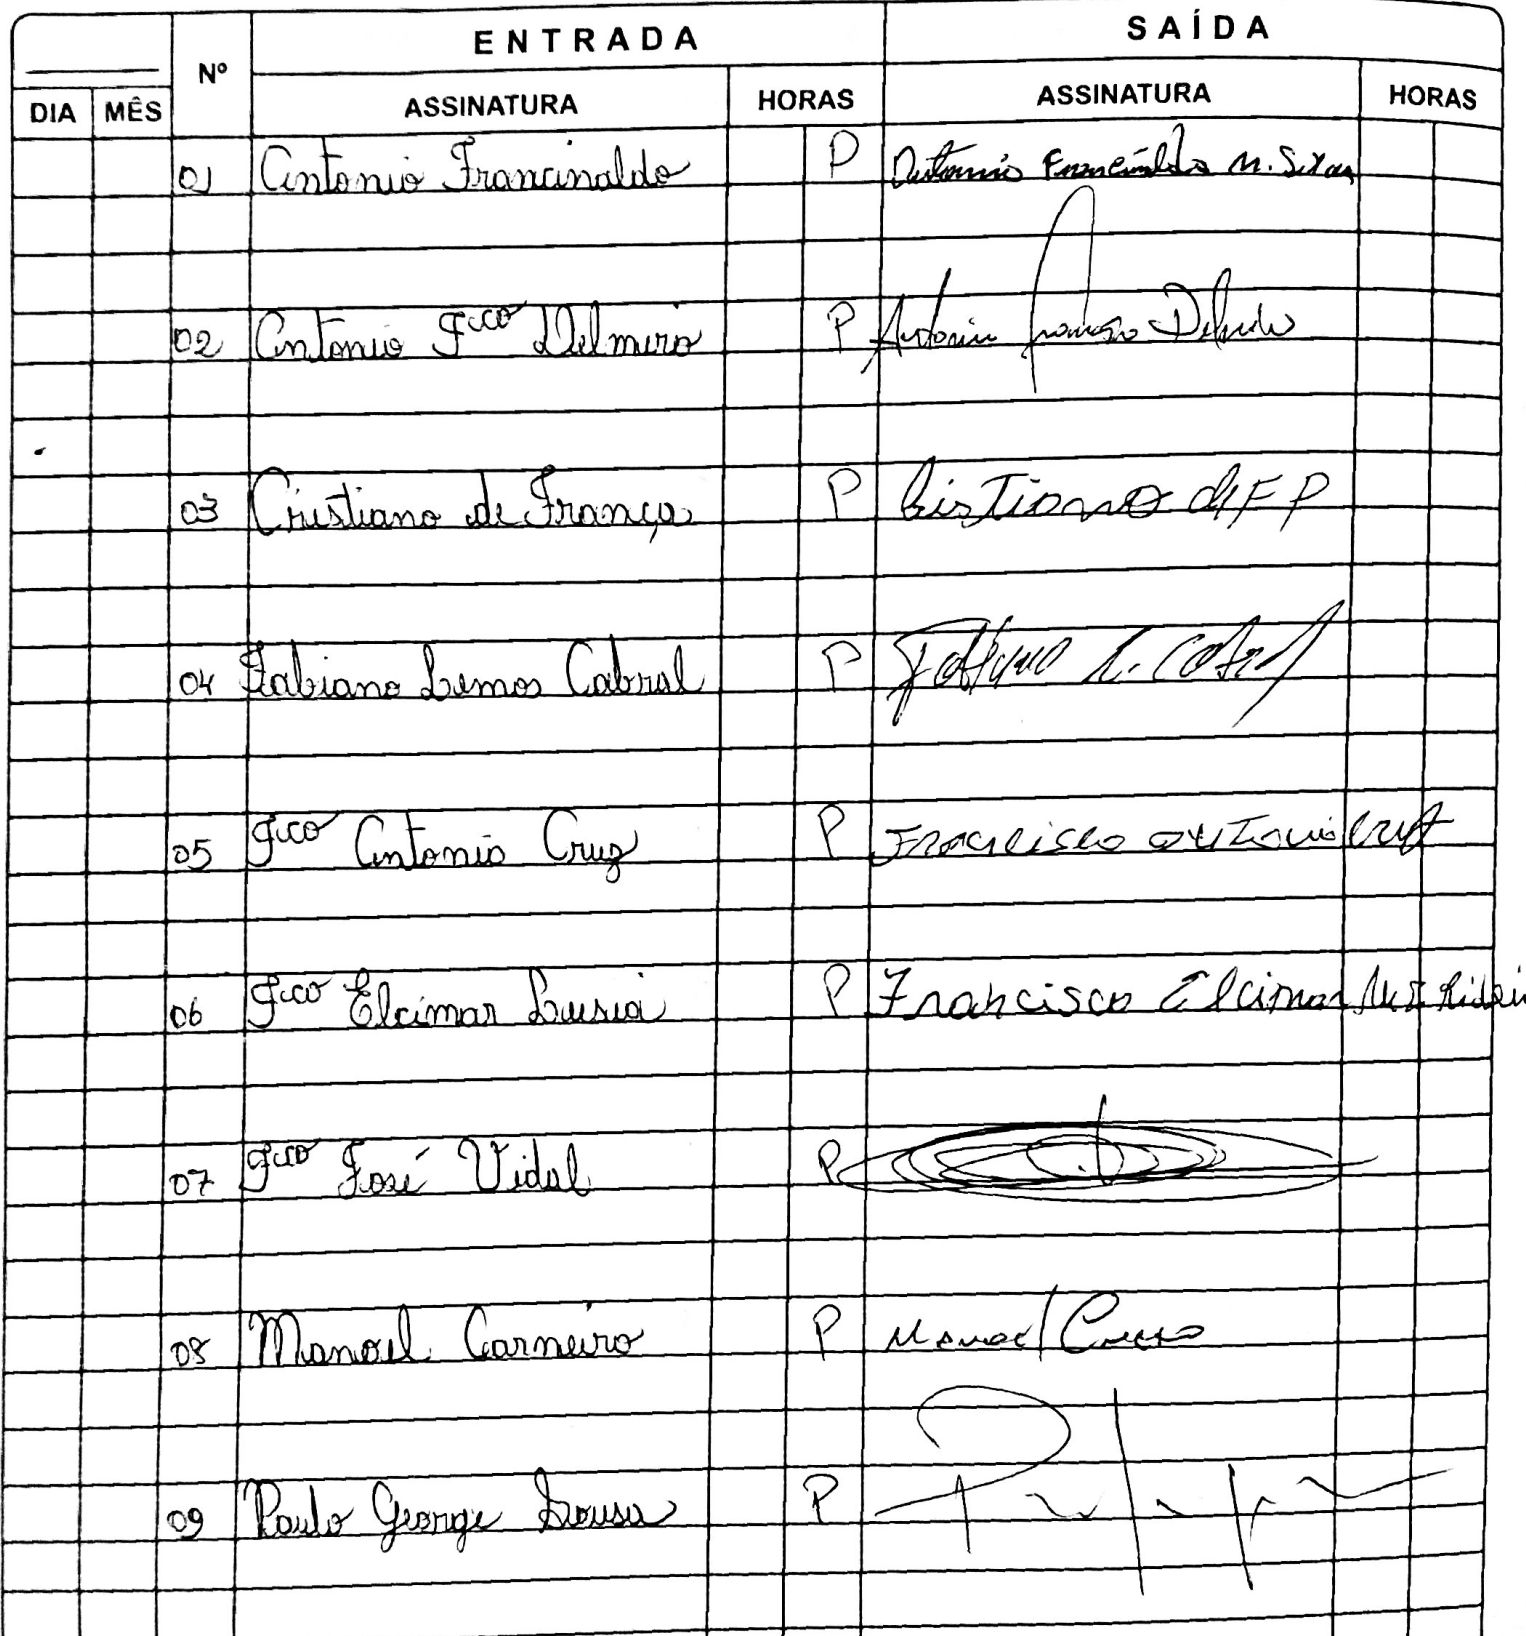 ENTRADA SAÍDA
Nº
DIA MÊS ASSINATURA HORAS ASSINATURA HORAS
01 Antonio Francinaldo P Antonio Francinaldo M. Silva
02 Antonio Fco Delmiro P Antonio Delmiro
03 Cristiano de França P Cistiano de F P
04 Fabiano Lemos Cabral P Fabiano L. Cabral
05 Fco Antonio Cruz P Francisco Antonio Cruz
06 Fco Elcimar P Francisco Elcimar
07 Fco José Vidal P
08 Manoel Carneiro P Manoel
09 Paulo George Sousa P